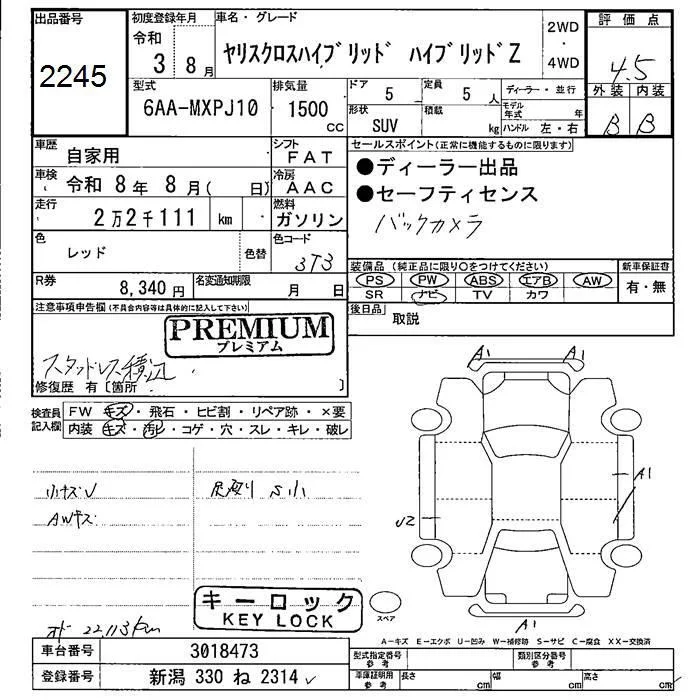 出品番号
2245
初度登録年月
令和
3 8月
車名・グレード
ヤリスクロスハイブリッド ハイブリッドZ
2WD
・
4WD
評価点
4.5
外装 内装
B B
型式
6AA-MXPJ10
排気量
1500
cc
ドア
5
定員
5 人
形状
SUV
積載
kg
ディーラー・並行
モデル年式 年
ハンドル 左・右
車歴
自家用
シフト
FAT
車検
令和 8年 8月( 日)
冷房
AAC
走行
2万2千111 km
燃料
ガソリン
色
レッド
色替
色コード
3T3
R券
8,340円
名変通知期限
月 日
セールスポイント(正常に機能するものに限ります)
●ディーラー出品
●セーフティセンス
バックカメラ
装備品(純正品に限り○をつけてください)
新車保証書
PS PW ABS エアB AW
SR ナビ TV カワ
有・無
後日品
取説
注意事項申告欄(不具合内容等は具体的に記入して下さい)
PREMIUM
プレミアム
スタッドレス積込
修復歴 有〔箇所 〕
検査員
記入欄
FW キズ・飛石・ヒビ割・リペア跡・×要
内装 キズ・汚レ・コゲ・穴・スレ・キレ・破レ
小キズU
AWキズ
S小
キーロック
KEY LOCK
オド 22,113km
A1 A1
A1
U2
A1
スペア
A-キズ E-エクボ U-凹み W-補修跡 S-サビ C-腐食 XX-交換済
車台番号
3018473
登録番号
新潟 330 ね 2314
型式指定番号
参考
類別区分番号
参考
車庫証明用
参考
長さ cm
幅 cm
高さ cm